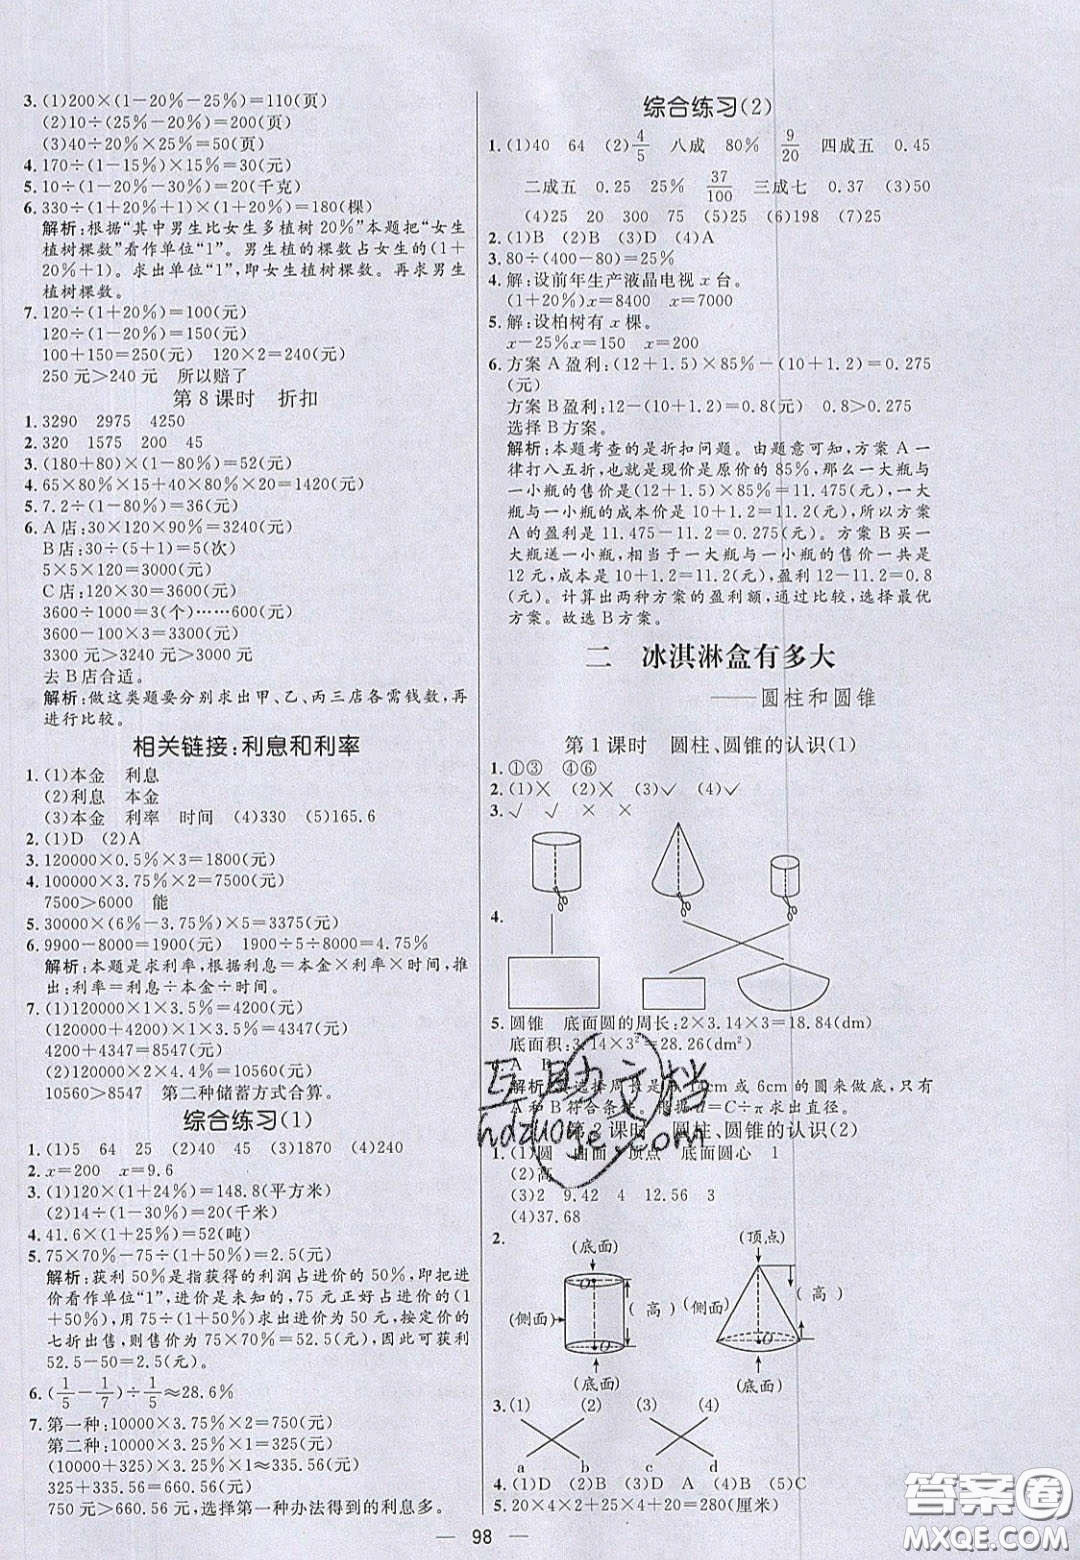 3. (1)200×(1－20%－25%)＝110(页)
(2)10÷(25%－20%)＝200(页)
(3)40÷20%×25%＝50(页)
4. 170÷(1－15%)×15%＝30(元)
5. 10÷(1－20%－30%)＝20(千克)
6. 330÷(1＋20%＋1)×(1＋20%)＝180(棵)
解析:根据“其中男生比女生多植树20%”本题把“女生
植树棵数”看作单位“1”。男生植的棵数占女生的(1＋
20%＋1)。求出单位“1”,即女生植树棵数。再求男生
植树棵数。
7. 120÷(1＋20%)＝100(元)
120÷(1－20%)＝150(元)
100＋150＝250(元) 120×2＝240(元)
250元＞240元 所以赔了
第8课时 折扣
1. 3290 2975 4250
2. 320 1575 200 45
3. (180＋80)×(1－80%)＝52(元)
4. 65×80%×15＋40×80%×20＝1420(元)
5. 7.2÷(1－80%)＝36(元)
6. A店:30×120×90%＝3240(元)
B店:30÷(5＋1)＝5(次)
5×5×120＝3000(元)
C店:120×30＝3600(元)
3600÷1000＝3(个)……600(元)
3600－100×3＝3300(元)
3300元＞3240元＞3000元
去B店合适。
解析:做这类题要分别求出甲、乙、丙三店各需钱数,再
进行比较。
相关链接:利息和利率
1. (1)本金 利息
(2)利息 本金
(3)本金 利率 时间 (4)330 (5)165.6
2. (1)D (2)A
3. 120000×0.5%×3＝1800(元)
4. 100000×3.75%×2＝7500(元)
7500＞6000 能
5. 30000×(6%－3.75%)×5＝3375(元)
6. 9900－8000＝1900(元) 1900÷5÷8000＝4.75%
解析:本题是求利率,根据利息＝本金×利率×时间,推
出:利率＝利息÷本金÷时间。
7. (1)120000×1×3.5%＝4200(元)
(120000＋4200)×1×3.5%＝4347(元)
4200＋4347＝8547(元)
(2)120000×2×4.4%＝10560(元)
10560＞8547 第二种储蓄方式合算。
综合练习(1)
1. (1)5 64 25 (2)40 45 (3)1870 (4)240
2. x＝200 x＝9.6
3. (1)120×(1＋24%)＝148.8(平方米)
(2)14÷(1－30%)＝20(千米)
4. 41.6×(1＋25%)＝52(吨)
5. 75×70%－75÷(1＋50%)＝2.5(元)
解析:获利50%是指获得的利润占进价的50%,即把进
价看作单位“1”,进价是未知的,75元正好占进价的(1
＋50%),用75÷(1＋50%)求出进价为50元,按定价的
七折出售,则售价为75×70%＝52.5(元),因此可获利
52.5－50＝2.5(元)。
6. (1/5－1/7)÷1/5≈28.6%
7. 第一种:10000×3.75%×2＝750(元)
第二种:10000×3.25%＝325(元)
(10000＋325)×3.25%≈335.56(元)
325＋335.56＝660.56(元)
750元＞660.56元,选择第一种办法得到的利息多。
综合练习(2)
1. (1)40 64 (2)4/5 八成 80% 9/20 四成五 0.45
二成五 0.25 25% 37/100 三成七 0.37 (3)50
(4)25 20 300 75 (5)25 (6)198 (7)25
2. (1)B (2)B (3)D (4)A
3. 80÷(400－80)＝25%
4. 解:设前年生产液晶电视x台。
(1＋20%)x＝8400 x＝7000
5. 解:设柏树有x棵。
x－25%x＝150 x＝200
6. 方案A盈利:(12＋1.5)×85%－(10＋1.2)＝0.275
(元)
方案B盈利:12－(10＋1.2)＝0.8(元) 0.8＞0.275
选择B方案。
解析:本题考查的是折扣问题。由题意可知,方案A一
律打八五折,也就是现价是原价的85%,那么一大瓶与
一小瓶的售价是(12＋1.5)×85%＝11.475(元),一大
瓶与一小瓶的成本价是10＋1.2＝11.2(元),所以方案
A的盈利是11.475－11.2＝0.275(元)。方案B买一
大瓶送一小瓶,相当于一大瓶与一小瓶的售价一共是
12元,成本是10＋1.2＝11.2(元),盈利12－11.2＝0.8
(元)。计算出两种方案的盈利额,通过比较,选择最优
方案。故选B方案。
二 冰淇淋盒有多大
——圆柱和圆锥
第1课时 圆柱、圆锥的认识(1)
1. ①③ ④⑥
2. (1)× (2)× (3)√ (4)√
3. √ √ × ×
4.
5. 圆锥 底面圆的周长:2×3.14×3＝18.84(dm)
底面积:3.14×3²＝28.26(dm²)
第2课时 圆柱、圆锥的认识(2)
1. (1)圆 曲面 顶点 底面圆心 1
(2)高
(3)2 9.42 4 12.56 3
(4)37.68
2.
(底面) (顶点)
(侧面) O (高) (侧面) (高)
O O
(底面) (底面)
3. (1) (2) (3) (4)
a b c d
4. (1)D (2)B (3)D A (4)B (5)C
5. 20×4×2＋25×4＋20＝280(厘米)
98
互助文档
hdzuoye.com
答案圈
MXQE.COM